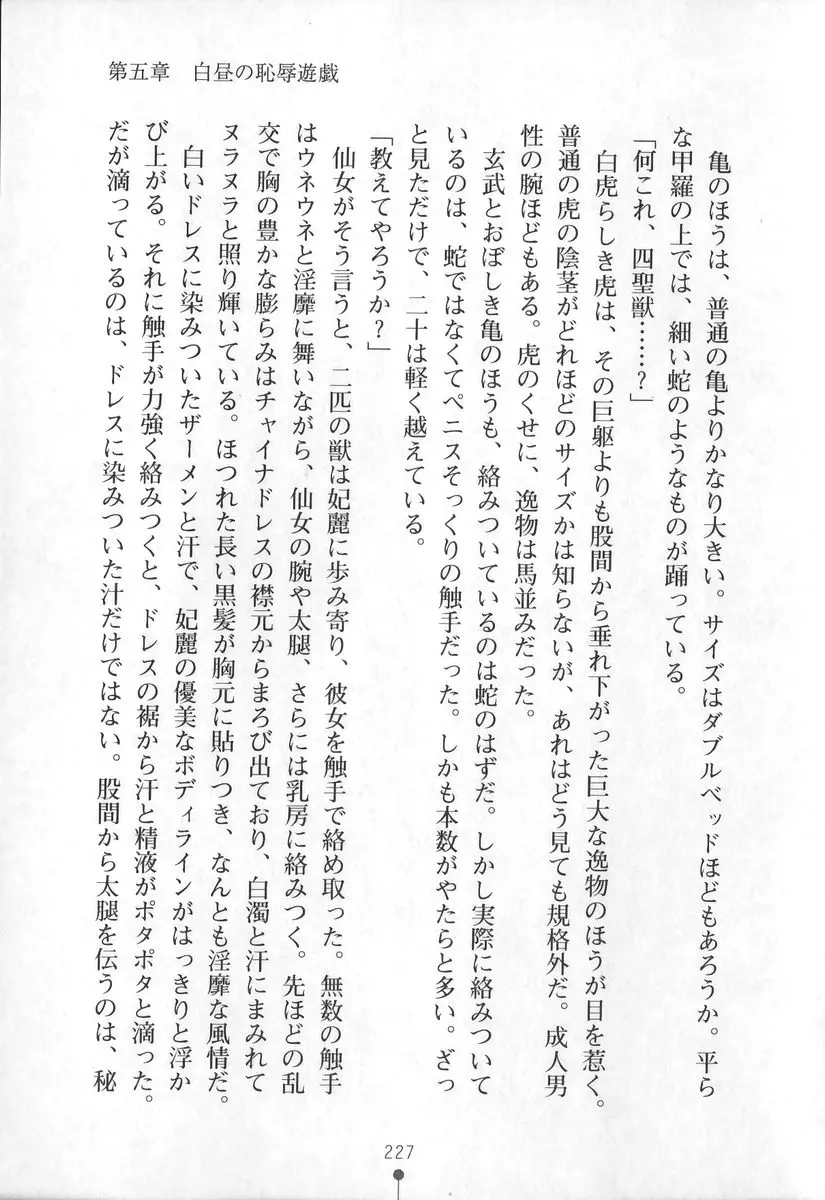 第五章　白昼の恥辱遊戯
亀のほうは、普通の亀よりかなり大きい。サイズはダブルベッドほどもあろうか。平ら
な甲羅の上では、細い蛇のようなものが踊っている。
「何これ、四聖獣……？」
白虎らしき虎は、その巨躯よりも股間から垂れ下がった巨大な逸物のほうが目を惹く。
普通の虎の陰茎がどれほどのサイズかは知らないが、あれはどう見ても規格外だ。成人男
性の腕ほどもある。虎のくせに、逸物は馬並みだった。
玄武とおぼしき亀のほうも、絡みついているのは蛇のはずだ。しかし実際に絡みついて
いるのは、蛇ではなくてペニスそっくりの触手だった。しかも本数がやたらと多い。ざっ
と見ただけで、二十は軽く越えている。
「教えてやろうか？」
仙女がそう言うと、二匹の獣は妃麗に歩み寄り、彼女を触手で絡め取った。無数の触手
はウネウネと淫靡に舞いながら、仙女の腕や太腿、さらには乳房に絡みつく。先ほどの乱
交で胸の豊かな膨らみはチャイナドレスの襟元からまろび出ており、白濁と汗にまみれて
ヌラヌラと照り輝いている。ほつれた長い黒髪が胸元に貼りつき、なんとも淫靡な風情だ。
白いドレスに染みついたザーメンと汗で、妃麗の優美なボディラインがはっきりと浮か
び上がる。それに触手が力強く絡みつくと、ドレスの裾から汗と精液がポタポタと滴った。
だが滴っているのは、ドレスに染みついた汁だけではない。股間から太腿を伝うのは、秘
227